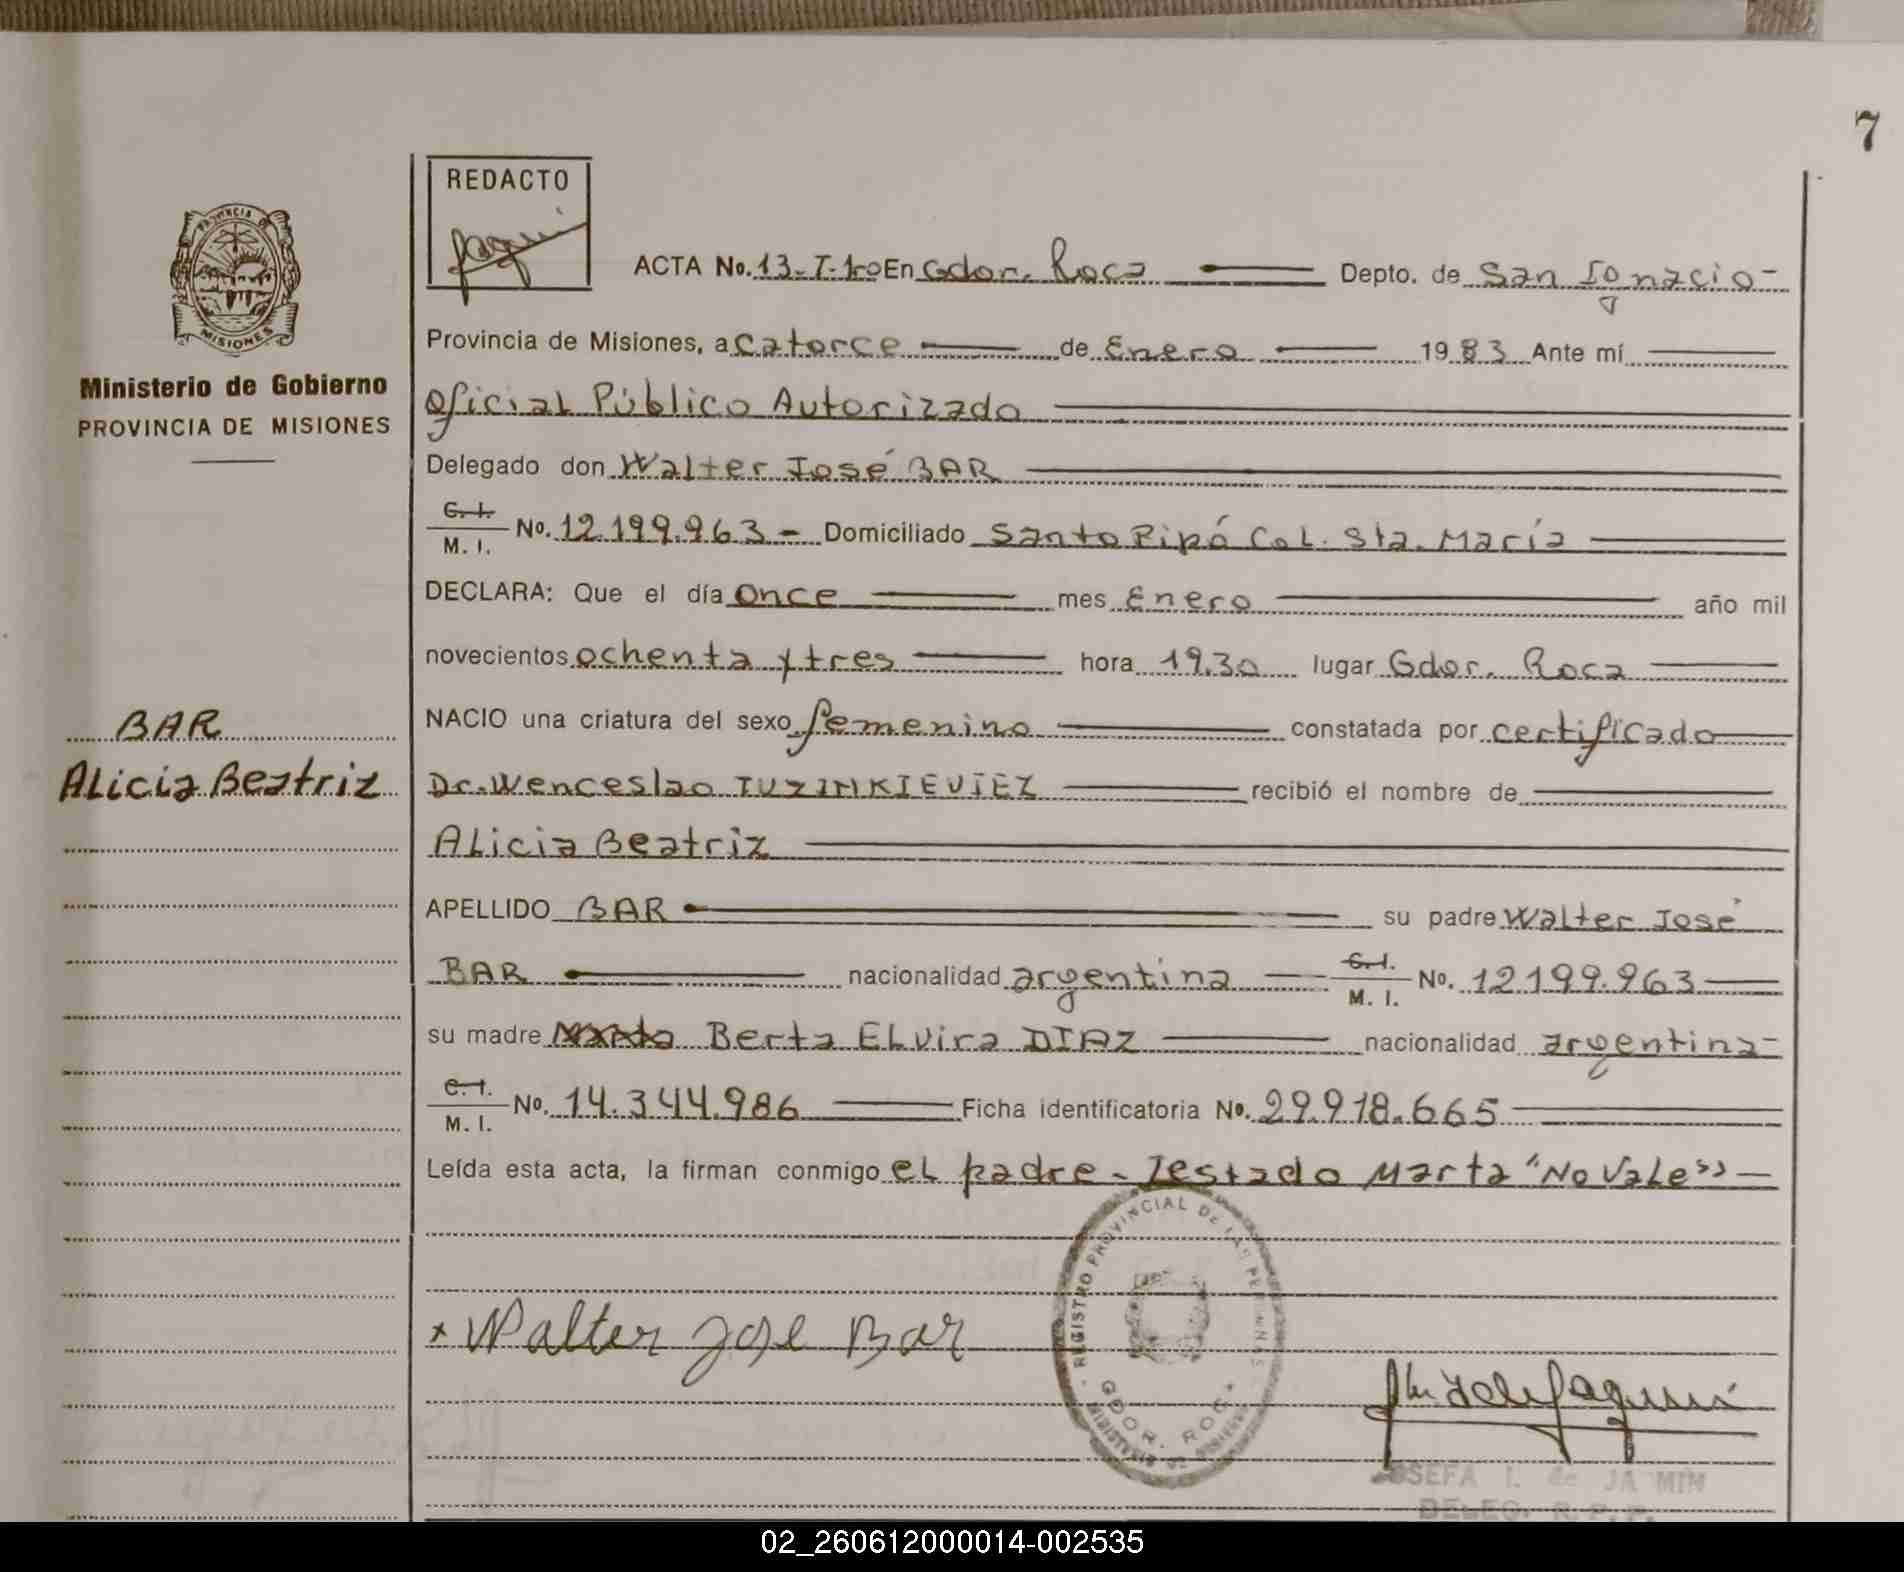 7
REDACTO
ACTA No. 13-T-1ro En Gdor. Roca Depto. de San Ignacio-
PROVINCIA DE
MISIONES
Provincia de Misiones, a catorce de Enero 1983 Ante mí
Ministerio de Gobierno
PROVINCIA DE MISIONES
Oficial Público Autorizado
Delegado don Walter José BAR
C. I. M. I. No. 12.199.963 - Domiciliado Santo Pipó Col. Sta. María
DECLARA: Que el día Once mes Enero año mil
novecientos ochenta y tres hora 19.30 lugar Gdor. Roca
BAR
NACIO una criatura del sexo femenino constatada por certificado
Alicia Beatriz
Dr. Wenceslao recibió el nombre de
Alicia Beatriz
APELLIDO BAR su padre Walter José
BAR nacionalidad argentina C. I. M. I. No. 12.199.963
su madre Marta Berta Elvira DIAZ nacionalidad argentina-
C. I. M. I. No. 14.344.986 Ficha identificatoria No. 29.918.665
Leída esta acta, la firman conmigo el padre - Testado Marta "No Vale" -
REGISTRO PROVINCIAL DE LAS PERSONAS
GDOR. ROCA
MINISTERIO DE GOBIERNO
x Walter Jose Bar
JOSEFA I. de
DELEG. R. P. P.
02_260612000014-002535